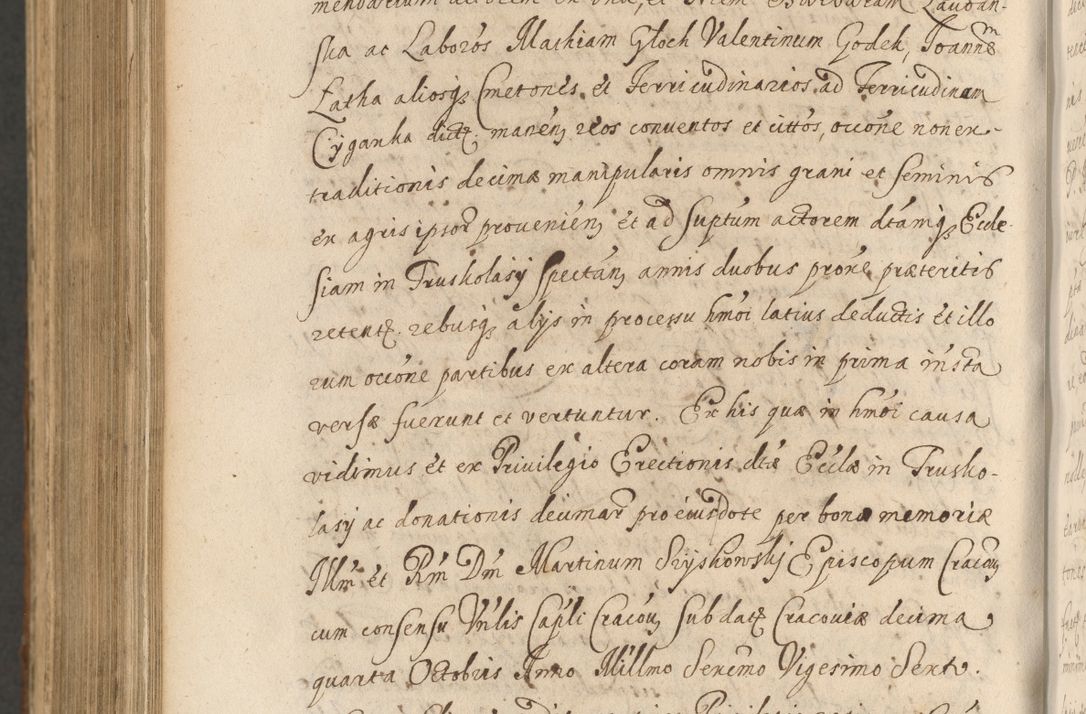 mendatarium actorem ex una, et
ska ac Laboros Mathiam Gloch Valentinum Godek, Joannem
Latka aliosq; Cmetones et Terricudinarios ad Terricudinam
Cyganka dict. manen; reos conventos et cittos, occōne non ex-
traditionis decimæ manipularis omnis grani et seminis
ex agris ipsor provenien; et ad suptum actorem dtamq; Eccle-
siam in Truskolasy spectan; annis duobus prone præteritis
retent. rebusq; alijs in processu hmōi latius deductis et illo
rum occōne partibus ex altera coram nobis in prima insta
versæ fuerunt et vertuntur. Ex his quæ in hmōi causa
vidimus et ex Privilegio Erectionis dtæ Ecclæ in Trusko-
lasy ac donationis decimar pro eiusdote per bonæ memoriæ
Illm et Rm Dm Martinum Szyskowskj Episcopum Cracou;
cum consensu Vnlis Capli Cracou; sub dat. Cracoviæ decima
quarta Octobris Anno Millmo Sexcmo Vigesimo Sexto.